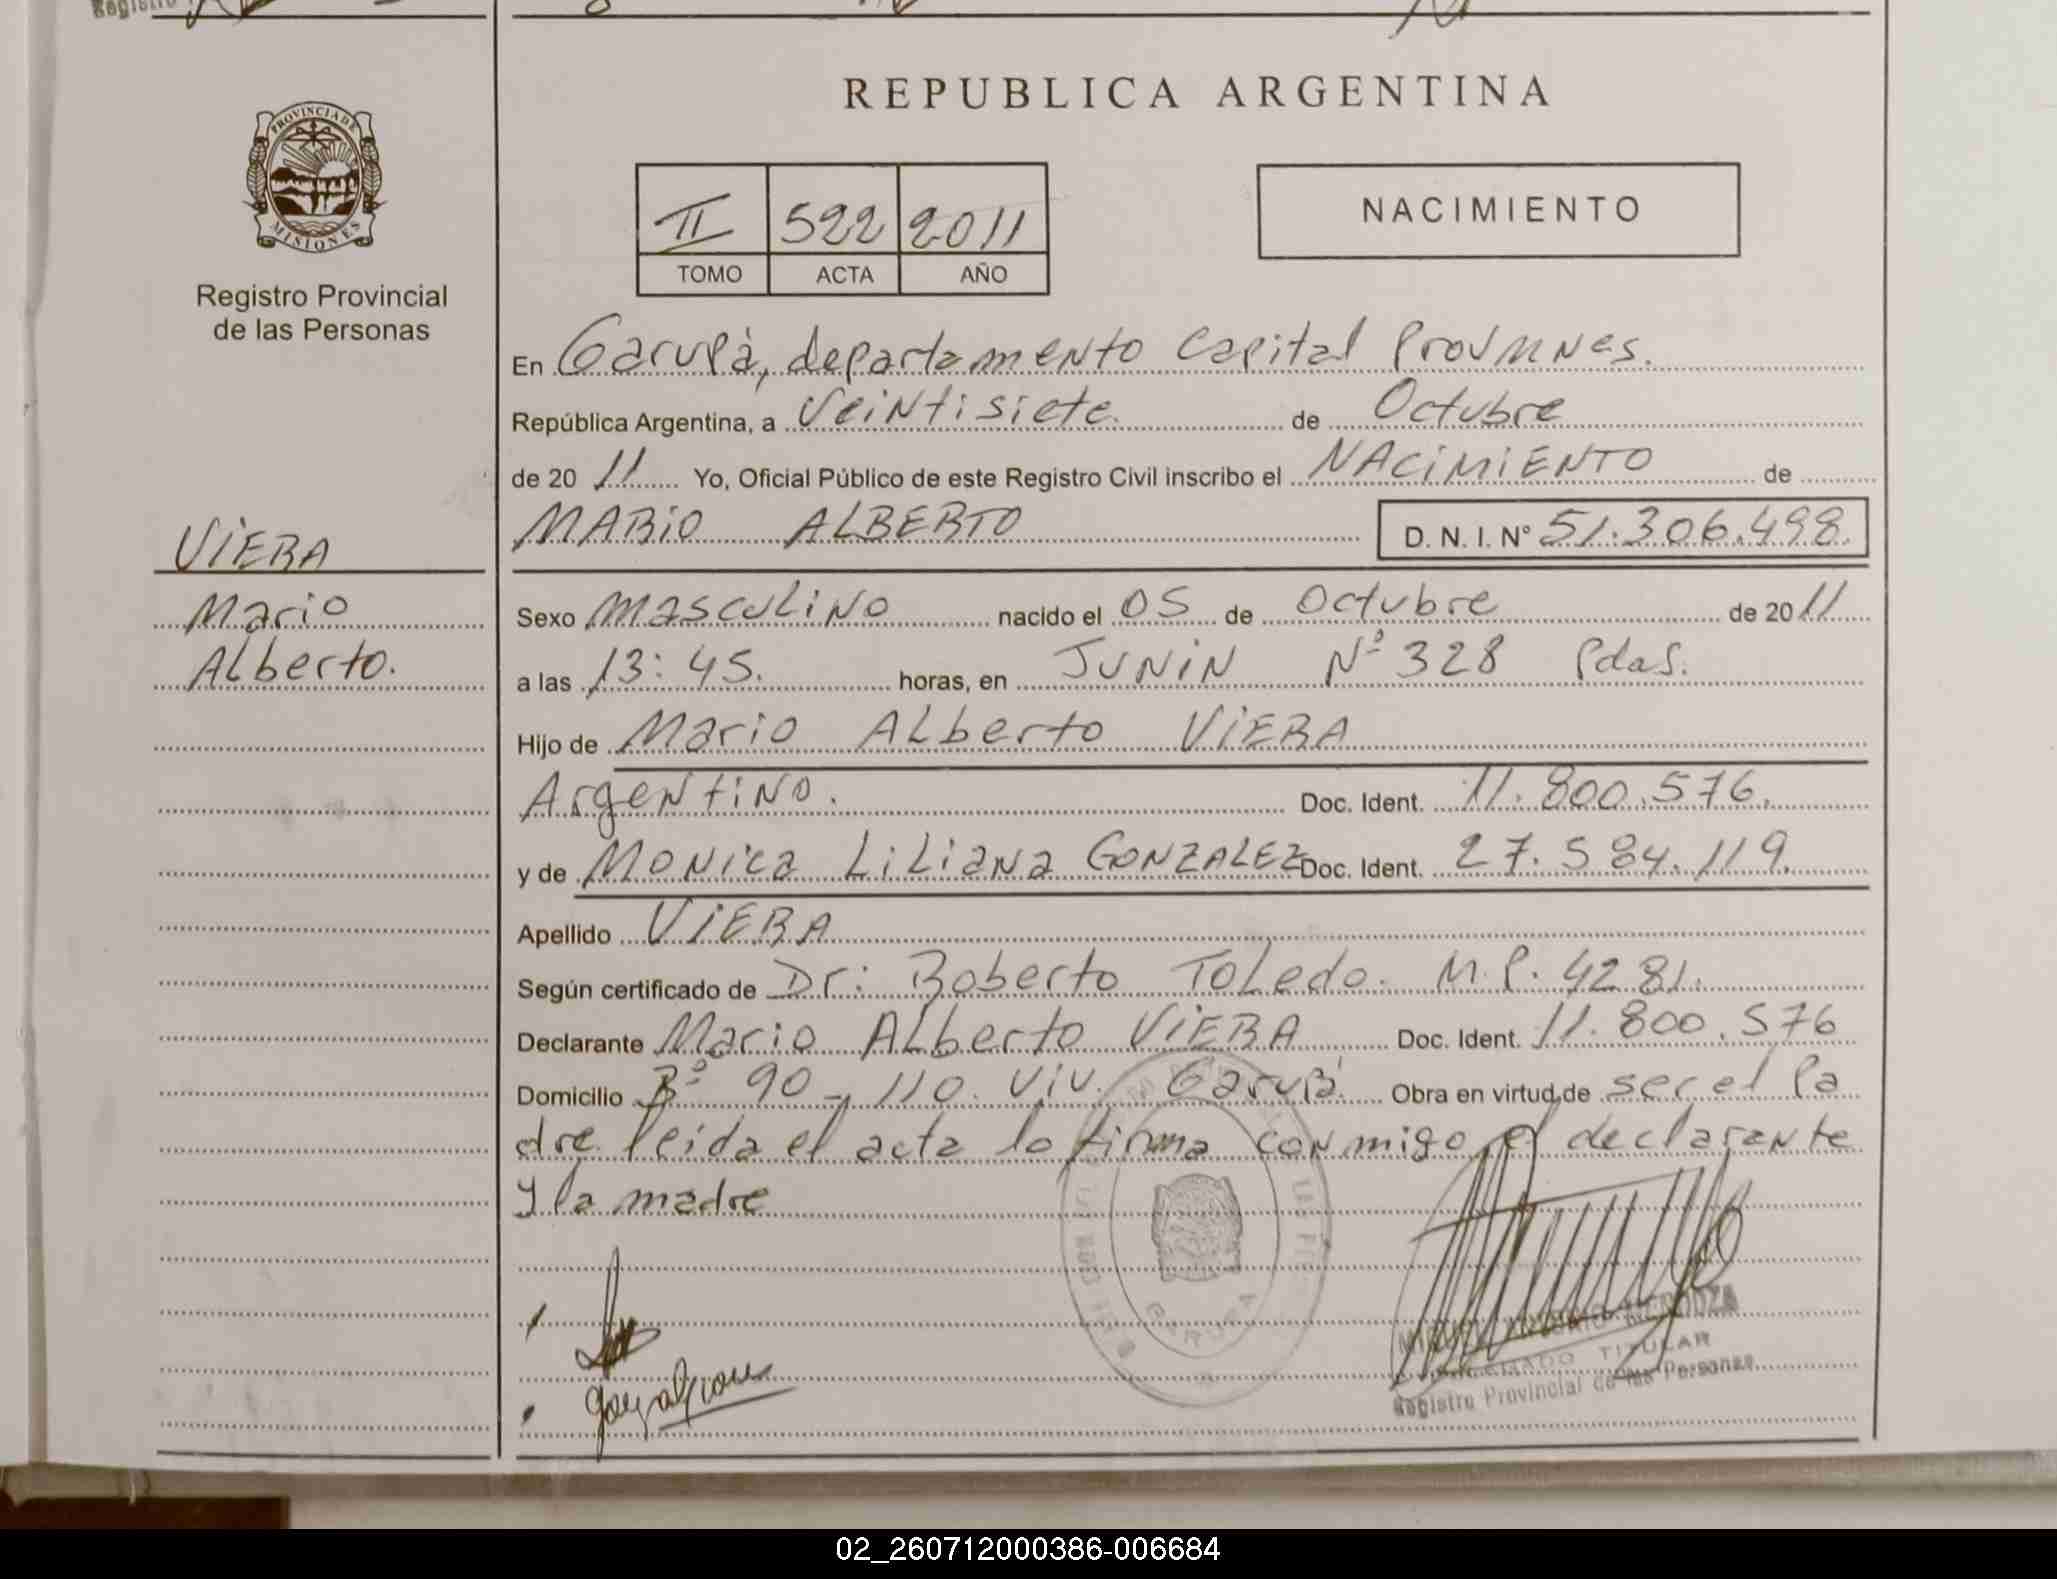 REPUBLICA ARGENTINA
PROVINCIA DE MISIONES
Registro Provincial
de las Personas
II 522 2011
TOMO ACTA AÑO
NACIMIENTO
En Garupà, departamento Capital Prov Mnes.
República Argentina, a Veintisiete. de Octubre
de 20 11 Yo, Oficial Público de este Registro Civil inscribo el NACIMIENTO de
MARIO ALBERTO D. N. I. N° 51.306.498.
VIERA
Mario
Alberto.
Sexo masculino nacido el 05 de Octubre de 2011
a las 13:45. horas, en JUNIN Nº 328 Pdas.
Hijo de Mario Alberto VIERA
Argentino. Doc. Ident. 11.800.576.
y de MONICA LILIANA GONZALEZ Doc. Ident. 27.584.119.
Apellido VIERA
Según certificado de Dr: Roberto Toledo. M.P. 4281.
Declarante Mario Alberto VIERA Doc. Ident. 11.800.576
Domicilio Bº 90-110. Viv. Garupá. Obra en virtud de ser el Pa
dre leida el acta lo firma conmigo el declarante
y la madre
GARUPA
MIGUEL ANTONIO MENDOZA
TITULAR
Registro Provincial de las Personas
02_260712000386-006684